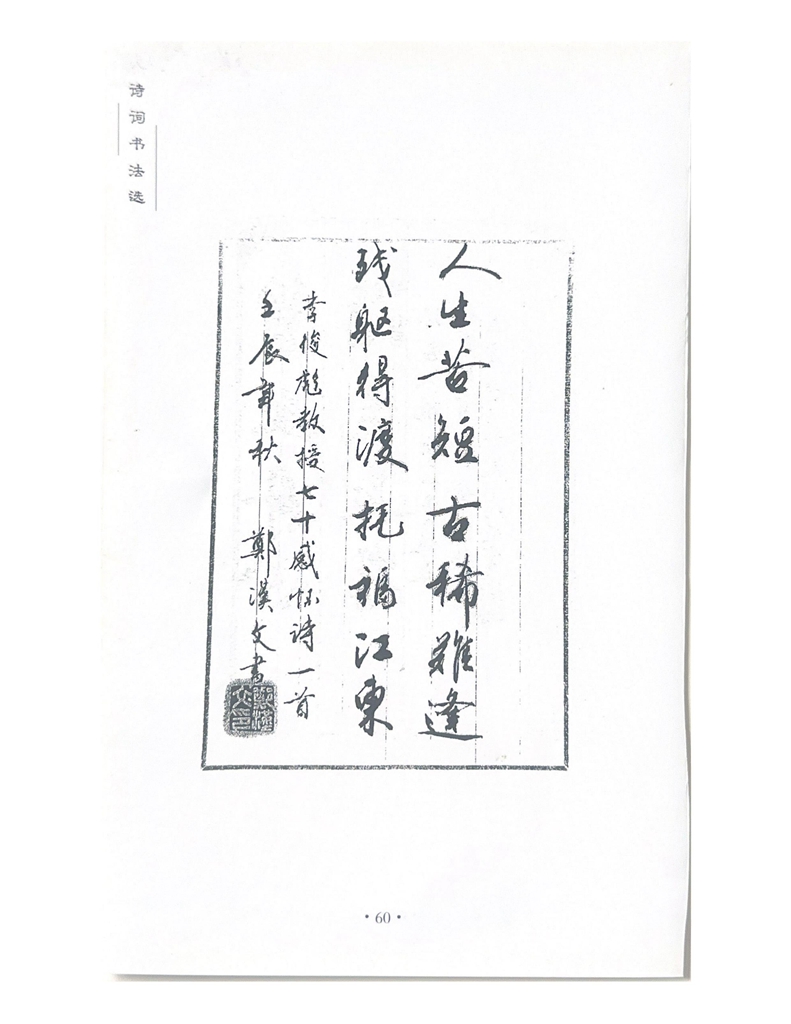 诗词书法选
人生苦短古稀难逢
残躯得渡托福江东
李俊彪教授七十感怀诗一首
壬辰年秋 鄭漢文書
·60·